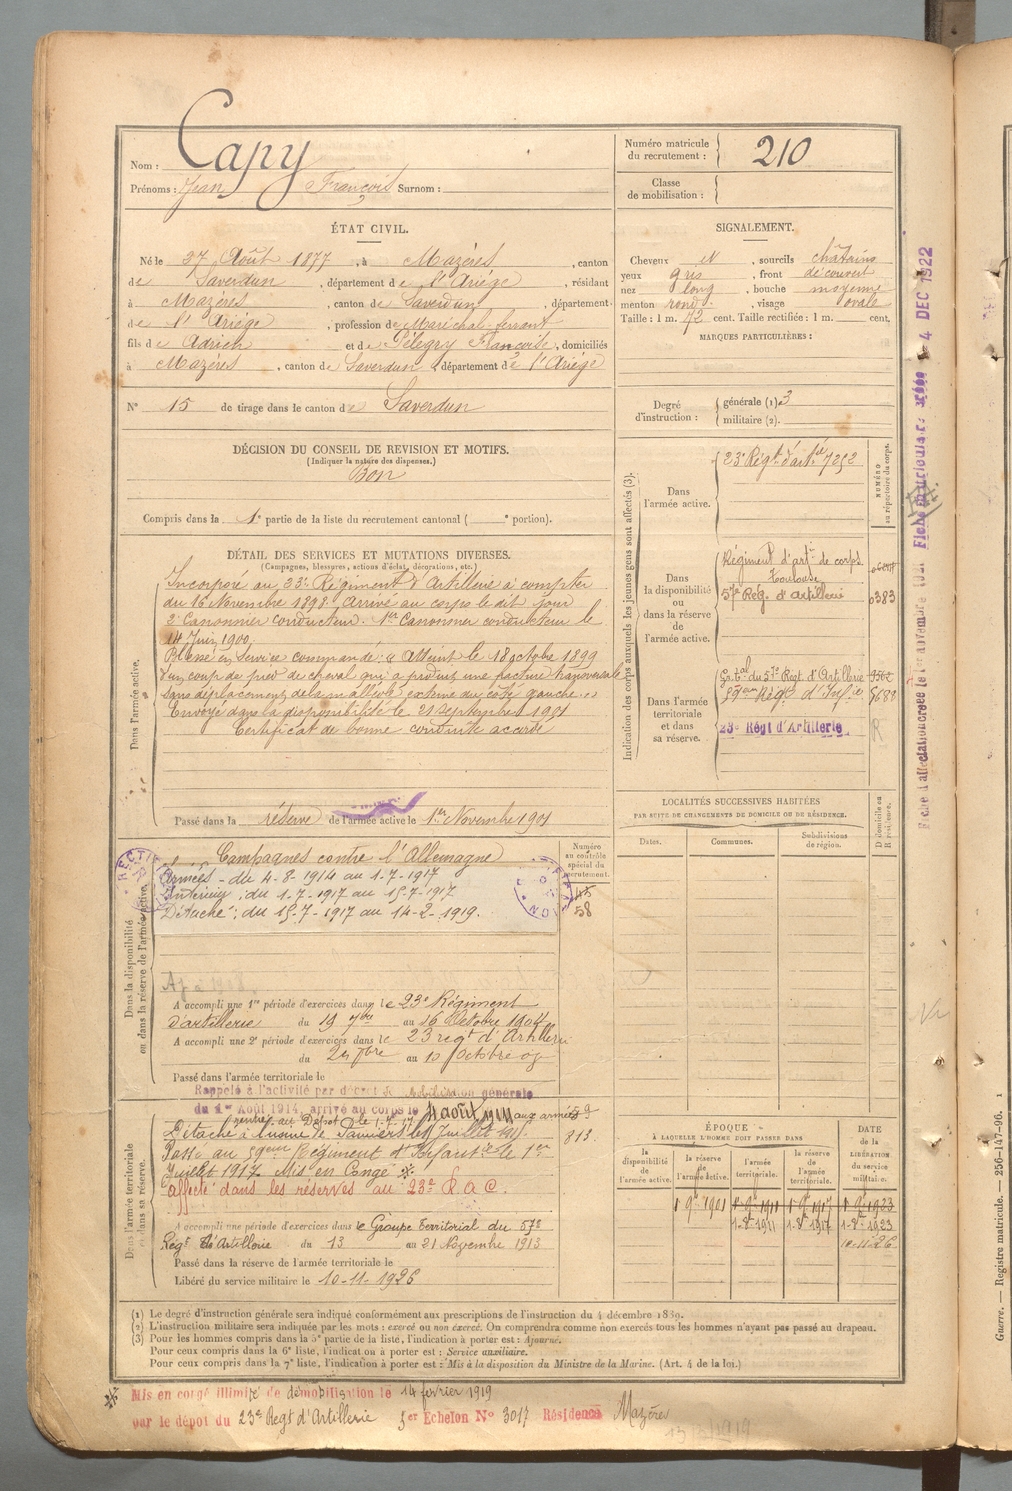 Nom : Capy
Prénoms : Jean François Surnom :
Numéro matricule du recrutement : 210
Classe de mobilisation :
ÉTAT CIVIL.
Né le 27 Août 1877, à Mazères, canton
de Saverdun, département de l'Ariège, résidant
à Mazères, canton de Saverdun, département
de l'Ariège, profession de Maréchal ferrant
fils de Adrien et de Pélegry Françoise, domiciliés
à Mazères, canton de Saverdun, département de l'Ariège
N° 15 de tirage dans le canton de Saverdun
SIGNALEMENT.
Cheveux et, sourcils châtains
yeux gris, front découvert
nez long, bouche moyenne
menton rond, visage ovale
Taille : 1 m. 72 cent. Taille rectifiée : 1 m. cent.
MARQUES PARTICULIÈRES :
Degré d'instruction : générale (1) 3
militaire (2).
DÉCISION DU CONSEIL DE REVISION ET MOTIFS.
(Indiquer la nature des dispenses.)
Bon
Compris dans la 1e partie de la liste du recrutement cantonal ( e portion).
DÉTAIL DES SERVICES ET MUTATIONS DIVERSES.
(Campagnes, blessures, actions d'éclat, décorations, etc.)
Dans l'armée active.
Incorporé au 23e Régiment d'Artillerie à compter
du 16 Novembre 1898. Arrivé au corps le dit jour
2e Canonnier conducteur. 1er Canonnier conducteur le
14 Juin 1900.
Blessé en service commandé : " Atteint le 18 octobre 1899
d'un coup de pied de cheval qui a produit une fracture transversale
sans déplacement de la malléole externe du côté gauche. "
Envoyé dans la disponibilité le 21 septembre 1901
Certificat de bonne conduite accordé
Passé dans la réserve de l'armée active le 1er Novembre 1901
Indication des corps auxquels les jeunes gens sont affectés (3).
NUMÉRO au répertoire du corps.
Dans l'armée active.
23e Régt d'artie 7252
Dans la disponibilité ou dans la réserve de l'armée active.
Régiment d'artie de corps
Toulouse
57e Rég. d'Artillerie 0383
Dans l'armée territoriale et dans sa réserve.
Gr. tal du 57e Régt d'Artillerie
59eme Régt d'Infie
23e Régt d'Artillerie R
LOCALITÉS SUCCESSIVES HABITÉES
PAR SUITE DE CHANGEMENTS DE DOMICILE OU DE RÉSIDENCE.
Dates. Communes. Subdivisions de région. Domicile ou Résidence.
Dans la disponibilité ou dans la réserve de l'armée active.
Numéro au contrôle spécial du recrutement.
45
58
Campagnes contre l'Allemagne
Armées - du 4-8-1914 au 1-7-1917
Intérieur : du 1-7-1917 au 15-7-1917
Détaché : du 15-7-1917 au 14-2-1919.
A accompli une 1re période d'exercices dans le 23e Régiment
d'artillerie du 19 7bre au 16 Octobre 1904
A accompli une 2e période d'exercices dans le 23 regt d'Artillerie
du au 10 Octobre 07
Passé dans l'armée territoriale le
Rappelé à l'activité par décret de mobilisation générale
du 1er Août 1914, arrivé au corps le 4 août 1914 aux armées
rentré au Dépôt le 1.7.17
Détaché à l'usine de Pamiers le Juillet
Passé au 59eme Régiment d'Infanterie le 1er
Juillet 1917. Mis en Congé
affecté dans les réserves au 23e R.A.C.
813.
Dans l'armée territoriale et dans sa réserve.
A accompli une période d'exercices dans le Groupe Territorial du 57e
Régt d'Artillerie du 13 au 21 Novembre 1913
Passé dans la réserve de l'armée territoriale le
Libéré du service militaire le 10-11-1926
ÉPOQUE
À LAQUELLE L'HOMME DOIT PASSER DANS
la disponibilité de l'armée active. la réserve de l'armée active. l'armée territoriale. la réserve de l'armée territoriale.
DATE de la LIBÉRATION du service militaire.
1 9bre 1901 1 9bre 1911 1 9bre 1917 1 9bre 1923
1-8t 1911 1-8t 1917 1-8t 1923
10-11-26
(1) Le degré d'instruction générale sera indiqué conformément aux prescriptions de l'instruction du 4 décembre 1889.
(2) L'instruction militaire sera indiquée par les mots : exercé ou non exercé. On comprendra comme non exercés tous les hommes n'ayant pas passé au drapeau.
(3) Pour les hommes compris dans la 5e partie de la liste, l'indication à porter est : Ajourné.
Pour ceux compris dans la 6e liste, l'indication à porter est : Service auxiliaire.
Pour ceux compris dans la 7e liste, l'indication à porter est : Mis à la disposition du Ministre de la Marine. (Art. 4 de la loi.)
Mis en congé illimité de démobilisation le 14 février 1919
par le dépôt du 23e Regt d'Artillerie 5er Echelon N° 3017 Résidence Mazères
4 DEC 1922
Guerre. — Registre matricule. — 256-147-96.